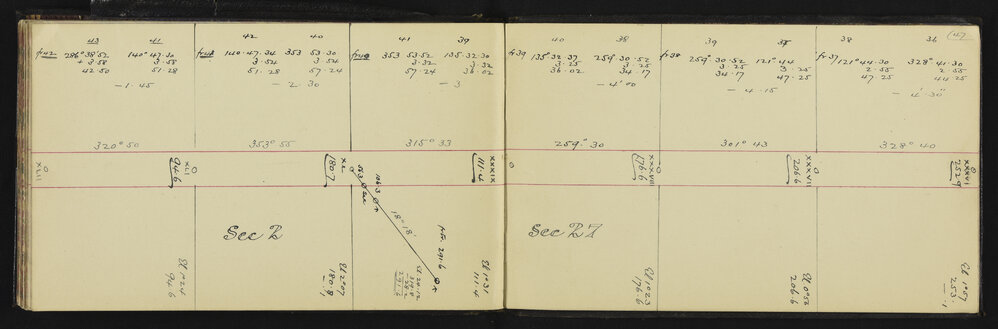 43 41
fr42 286°38'52 140°47·30
+ 3·58 3·58
42·50 51·28
- 1·45
320°50
XLII
XLI
94.6
El 1°24
94.6
42 40
fr41 140·47·34 353 53·30
3·54 3·54
51·28 57·24
- 2·30
353°55
XL
180.7
Sec 2
El 2°07
180.8
- .1
41 39
fr40 353 53·52 135·32·30
3·32 3·32
57·24 36·02
- 3
315°33
XXXIX
111.4
18°18'
291.6
El 1°31
111.4
40 38
fr39 135°32·37 259°30·52
3·25 3·25
36·02 34·17
- 4'00
259°30
XXXVIII
176.6
Sec 27
El 1°23
176.6
39 37
fr38 259°30·52 121°44
3·25 3·25
34·17 47·25
- 4·15
301°43
XXXVII
206.6
El 0°52
206.6
38 36 (47
fr37 121°44·30 328°41·30
2·55 2·55
47·25 44·25
- 4'·30"
328°40
XXXVI
252.9
El 1°57
253·1